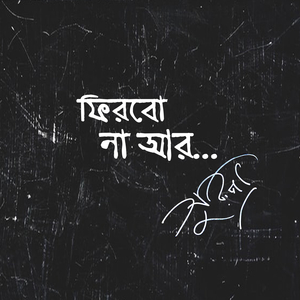 ফিরবো
না আর...